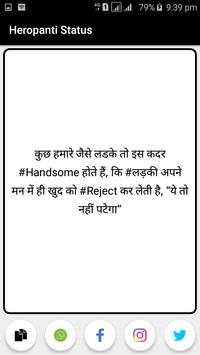 79% 9:39 pm
Heropanti Status
कुछ हमारे जैसे लडके तो इस कदर
#Handsome होते हैं, कि #लड़की अपने
मन में ही खुद को #Reject कर लेती है, “ये तो
नहीं पटेगा”